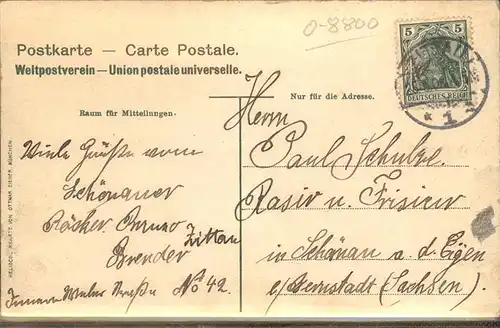 0-8800
Postkarte — Carte Postale.
Weltpostverein — Union postale universelle.
5 5
DEUTSCHES REICH
* 1 *
Raum für Mitteilungen.
Nur für die Adresse.
Viele Grüße vom
Schönauer
Bäcker Bruno
Zittau
Brender
Innere Weber Straße No 42.
Herrn
Paul Schulze
Rasir u. Frisieur
in Schönau a. d. Eigen
b/Bernstadt (Sachsen).
OTTMAR ZIEHER, MÜNCHEN